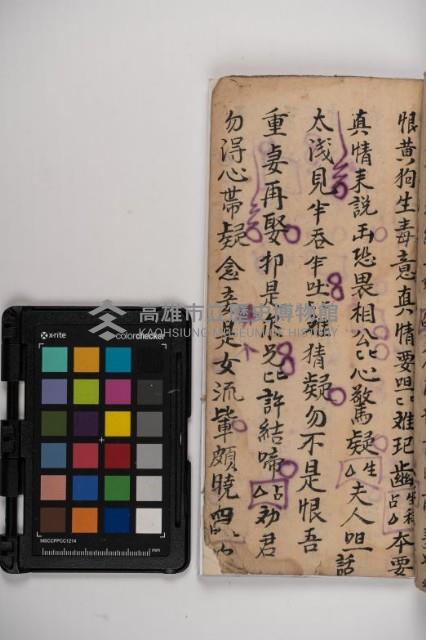 恨黃狗生毒意真情要呾难珤齒生科占本要
真情未說出恐畏相公心驚疑生夫人呾話
太淺見半吞半吐猜疑勿不是恨吾
重妻再娶抑是許結啼占劝君
勿得心帶疑念妾是女流輩頗曉四
高雄市立歷史博物館
KAOHSIUNG MUSEUM OF HISTORY
x-rite
colorchecker
MSCCPPCC1214
mm